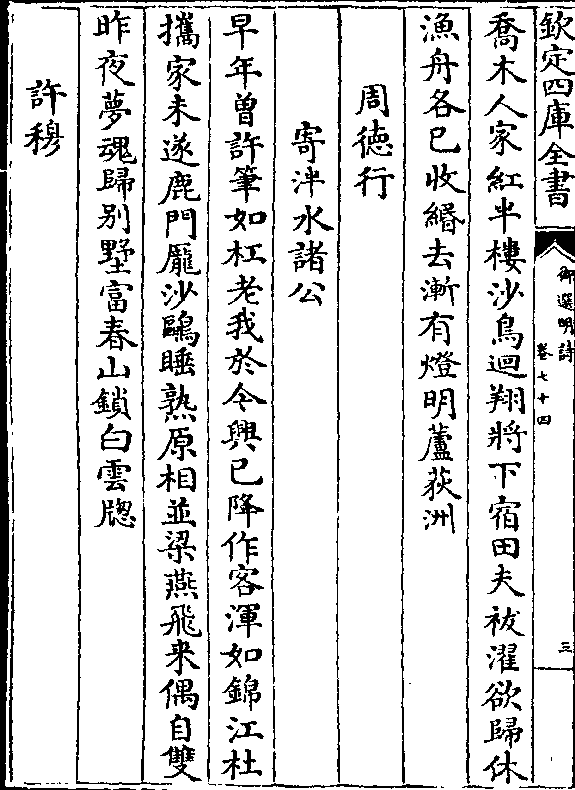 欽定四庫全書
御選明詩
卷七十四
三
喬木人家紅半樓沙鳥迴翔將下宿田夫袚濯欲歸休
漁舟各已收緡去漸有燈明蘆荻洲
周德行
寄泮水諸公
早年曽許筆如杠老我於今興已降作客渾如錦江杜
攜家未遂鹿門龎沙鷗睡熟原相並梁燕飛来偶自雙
昨夜夢魂歸别墅富春山鎖白雲牕
許穆